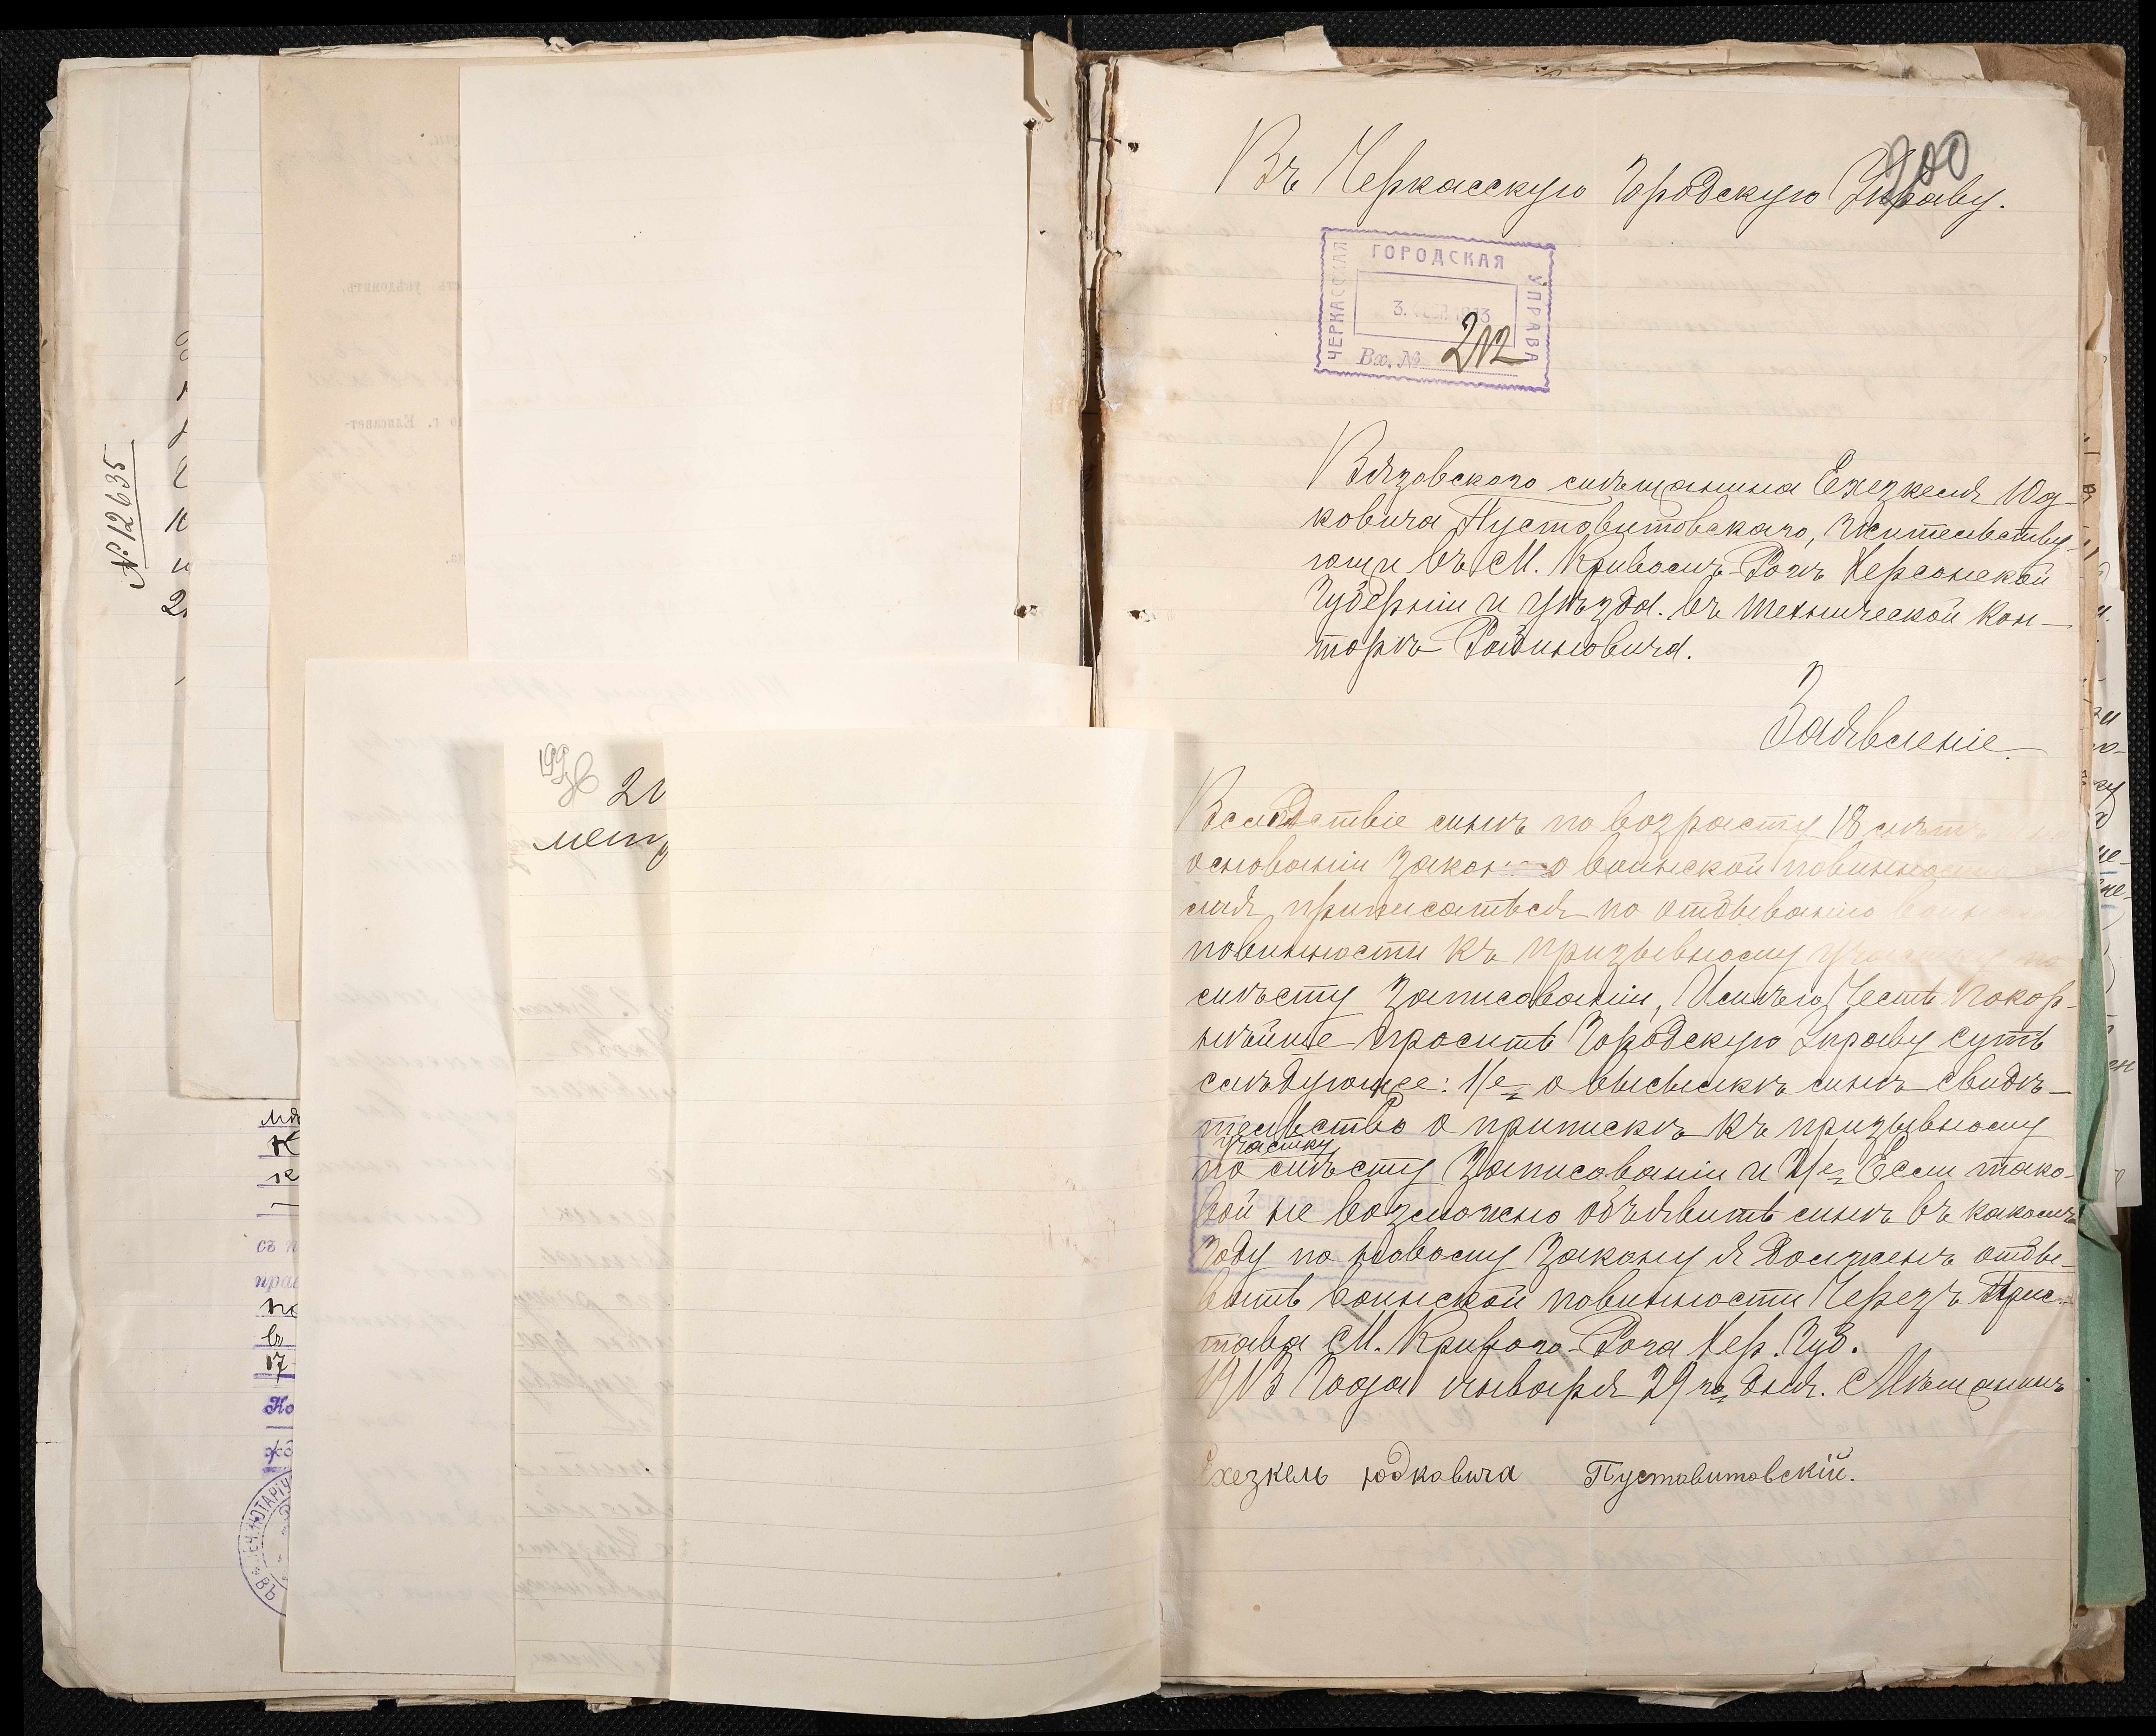 200
Въ Черкасскую Городскую Управу.
ЧЕРКАССКАЯ ГОРОДСКАЯ УПРАВА
Вх. № 212
Вязовского мѣщанина Ехезкеля Юд-
ковича Пустовитовскаго, жительству-
ющи въ М. Кривомъ-Рогѣ Херсонской
Губерніи и уѣзда. въ технической кон-
торѣ Рабиновича.
Заявленіе.
Вслѣдствіе мнѣ по возрасту 18 лѣтъ
основаніи закон о воинской повинности
приписаться по отбыванію
повинности къ призывному участку по
мѣсту записованіи, Имѣю Честь Покор-
нѣйше просить Городскую Управу суть
слѣдующее: 1/е о высылкѣ мнѣ свидѣ-
тельство о припискѣ къ призывному
участку
по мѣсту Записованіи и 2/е Если тако-
вой не возможно объявить мнѣ въ какомъ
Году по новому Закону я долженъ отбы-
вать воинской повинности Черезъ Прис-
тава М. Кривого-Рога Хер. Губ.
1913 Года января 29 го дня. Мѣщанинъ
Ехезкель Юдковича Пустовитовскій.
№ 12635
199
21
мет